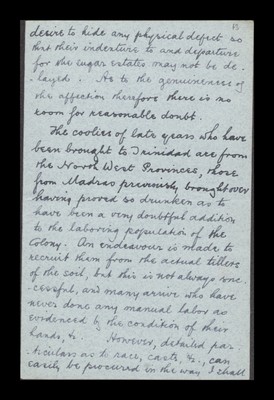 desire to hide any physical defect so
that their indenture to and departure
for the sugar estates may not be de-
-layed. As to the genuineness of
the affection therefore there is no
room for reasonable doubt.
The coolies of late years who have
been brought to Trinidad are from
the North West Provinces, those
from Madras previously, brought over
having proved so drunken as to
have been a very doubtful addition
to the laboring population of the
Colony. An endeavour is made to
recruit them from the actual tillers
of the soil, but this is not always suc-
-cessful, and many arrive who have
never done any manual labor as
evidenced by the condition of their
hands, &c. However, detailed par-
-ticulars as to race, caste, &c., can
easily be procured in the way I shall